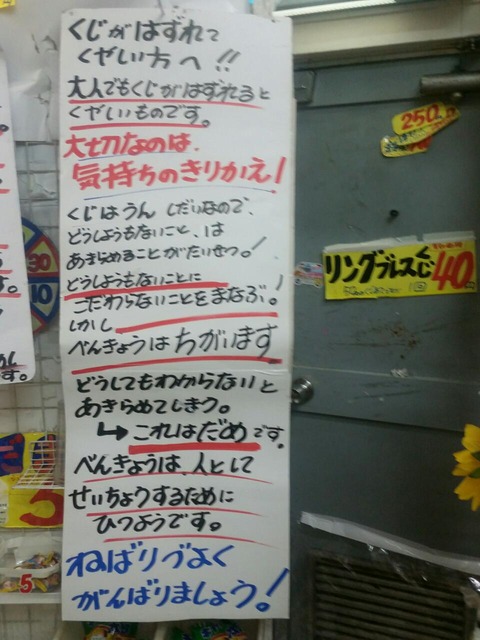 くじがはずれて
くやしい方へ!!
大人でもくじがはずれると
くやしいものです。
大切なのは、
気持ちのきりかえ!
くじはうんしだいなので、
どうしようもないこと、は
あきらめることがたいせつ。!
どうしようもないことに
こだわらないことをまなぶ!
しかし
べんきょうはちがいます
どうしてもわからないと
あきらめてしまう。
↳これはだめです。
べんきょうは、人として
せいちょうするために
ひつようです。
ねばりづよく
がんばりましょう!
250
リングブレスくじ
1回
40円
30
10
5
う
す。